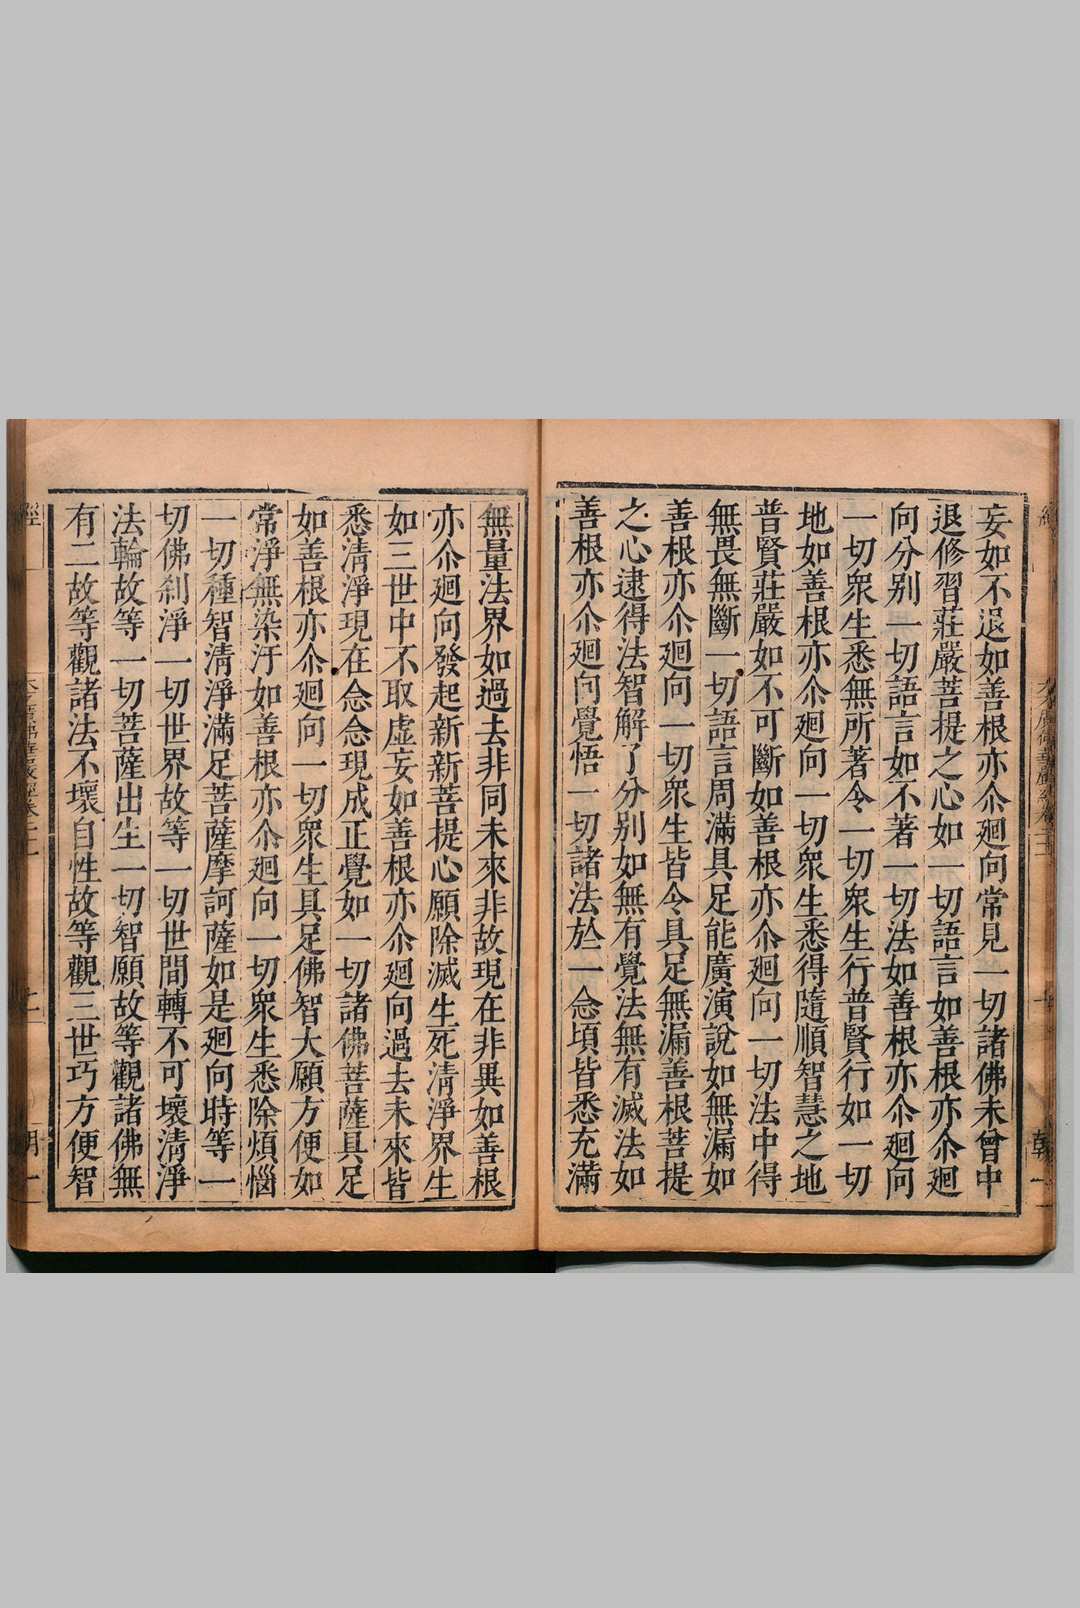 妄如不退如善根亦尒廻向常見一切諸佛未曾中
退修習莊嚴菩提之心如一切語言如善根亦尒廻
向分别一切語言如不著一切法如善根亦尒廻向
一切衆生悉無所著令一切衆生行普賢行如一切
地如善根亦尒廻向一切衆生悉得隨順智慧之地
普賢莊嚴如不可斷如善根亦尒廻向一切法中得
無畏無斷一切語言周滿具足能廣演說如無漏如
善根亦尒廻向一切衆生皆令具足無漏善根菩提
之心逮得法智解了分别如無有覺法無有滅法如
善根亦尒廻向覺悟一切諸法於一念頃皆悉充滿
無量法界如過去非同未來非故現在非異如善根
亦尒廻向發起新新菩提心願除滅生死淸淨界生
如三世中不取虛妄如善根亦尒廻向過去未來皆
悉淸淨現在念念現成正覺如一切諸佛菩薩具足
如善根亦尒廻向一切衆生具足佛智大願方便如
常淨無染汙如善根亦尒廻向一切衆生悉除煩惱
一切種智淸淨滿足菩薩摩訶薩如是廻向時等一
切佛刹淨一切世界故等一切世間轉不可壞淸淨
法輪故等一切菩薩出生一切智願故等觀諸佛無
有二故等觀諸法不壞自性故等觀三世巧方便智